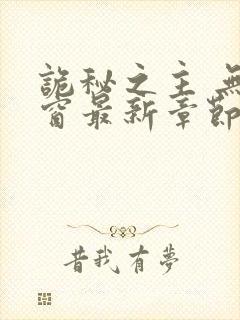 詭秘之主 無
窗最新章節
昔我有夢